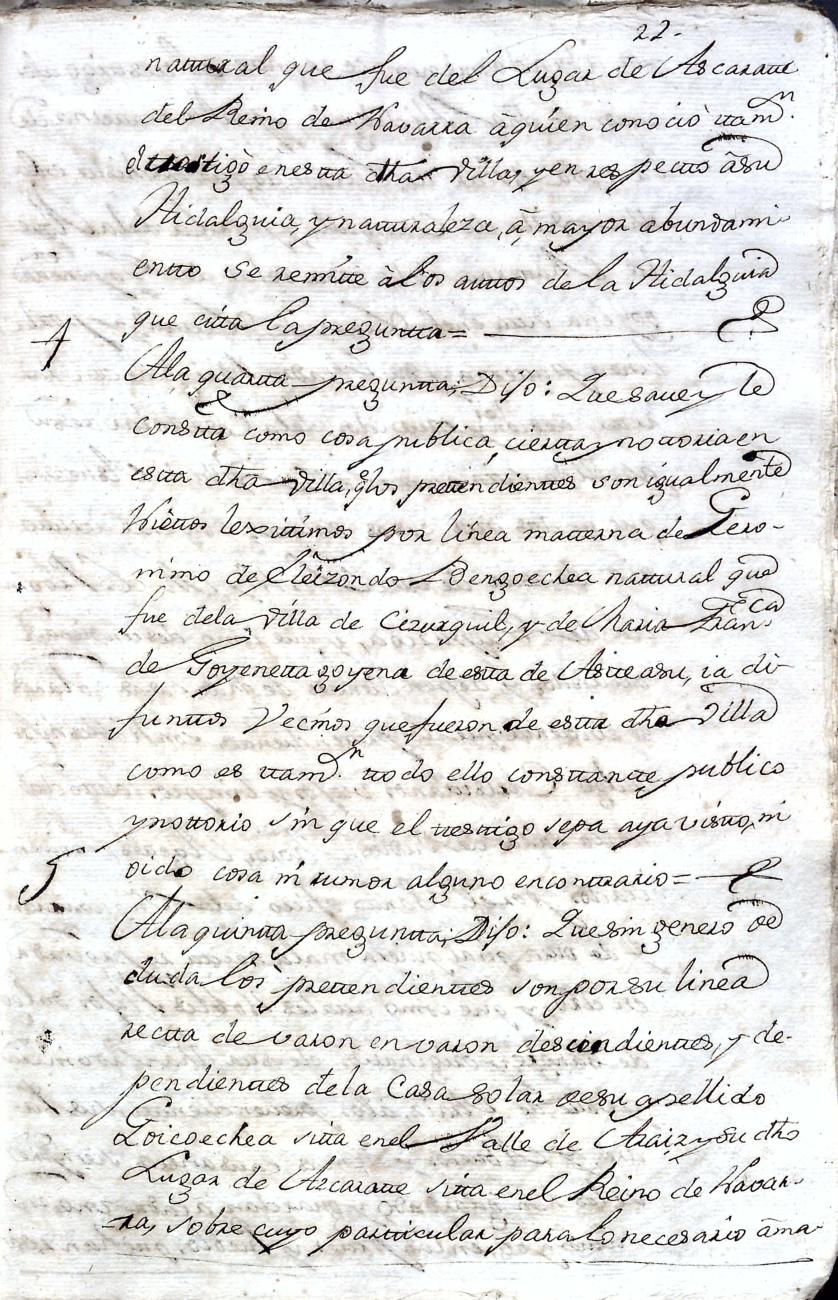 22.
natural que fue del Lugar de Ascarate
del Reino de Navarra â quien conociò tam.n
el testigò en esta dha Villa, y en respecto â su
Hidalguia, y naturaleza, â mayor abundami-
ento se remite à los autos de la Hidalguia
que cita la pregunta =
4
A la quarta pregunta; Dijo: Que save y le
consta como cosa publica, cierta y nottoria en
esta dha Villa, q.e los pretendientes son igualmente
Niettos lexitimos por linea materna de Gero-
nimo de Eleizondo Bengoechea natural que
fue de la Villa de Cizurquil, y de Maria Fran.ca
de Goyenetta goyena de esta de Asteasu, ia di-
funttos Vecinos que fueron de esta dha Villa
como es tam.n ttodo ello constante, publico
y nottorio sin que el testigo sepa aya visto, ni
oido cosa ni rumor alguno en contrario =
5
A la quinta pregunta; Dijo: Que sin genero de
duda los pretendientes son por su linea
recta de varon en varon descendientes, y de-
pendientes de la Casa solar de su apellido
Goicoechea sita en el Valle de Araiz y su dho
Lugar de Azcarate sita en el Reino de Navar-
ra, sobre cuyo particular para lo necesario â ma-